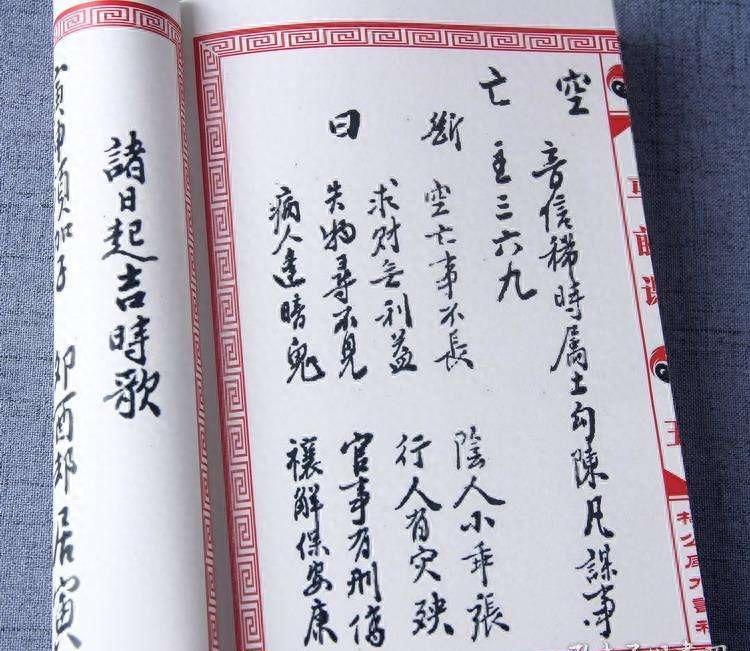 空 音信稀時属土勾陳凡謀事
亡 主三六九
斷 空亡事不長 陰人小乖張
求财無利益 行人有灾殃
曰 失物尋不見 官事有刑傷
病人逢暗鬼 禳解保安康
諸日起吉時歌
寅申須加子 卯酉却居寅